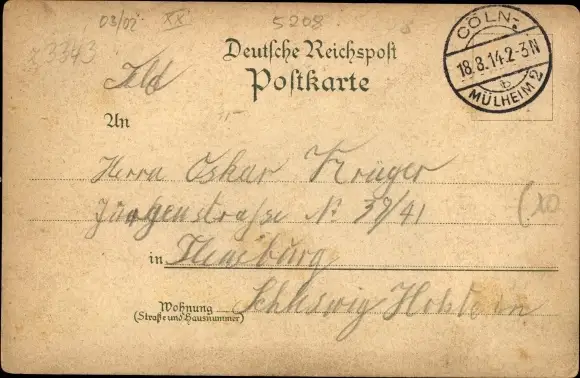 03/02 XX 5208
z 3343
CÖLN-
18.8.14.2-3N
b
MÜLHEIM 2
Deutsche Reichspost
Feld Postkarte
An
Herrn Oskar Krüger
Jürgenstraße № 39/41
in Flensburg
Wohnung Schleswig Holstein
(Straße und Hausnummer)